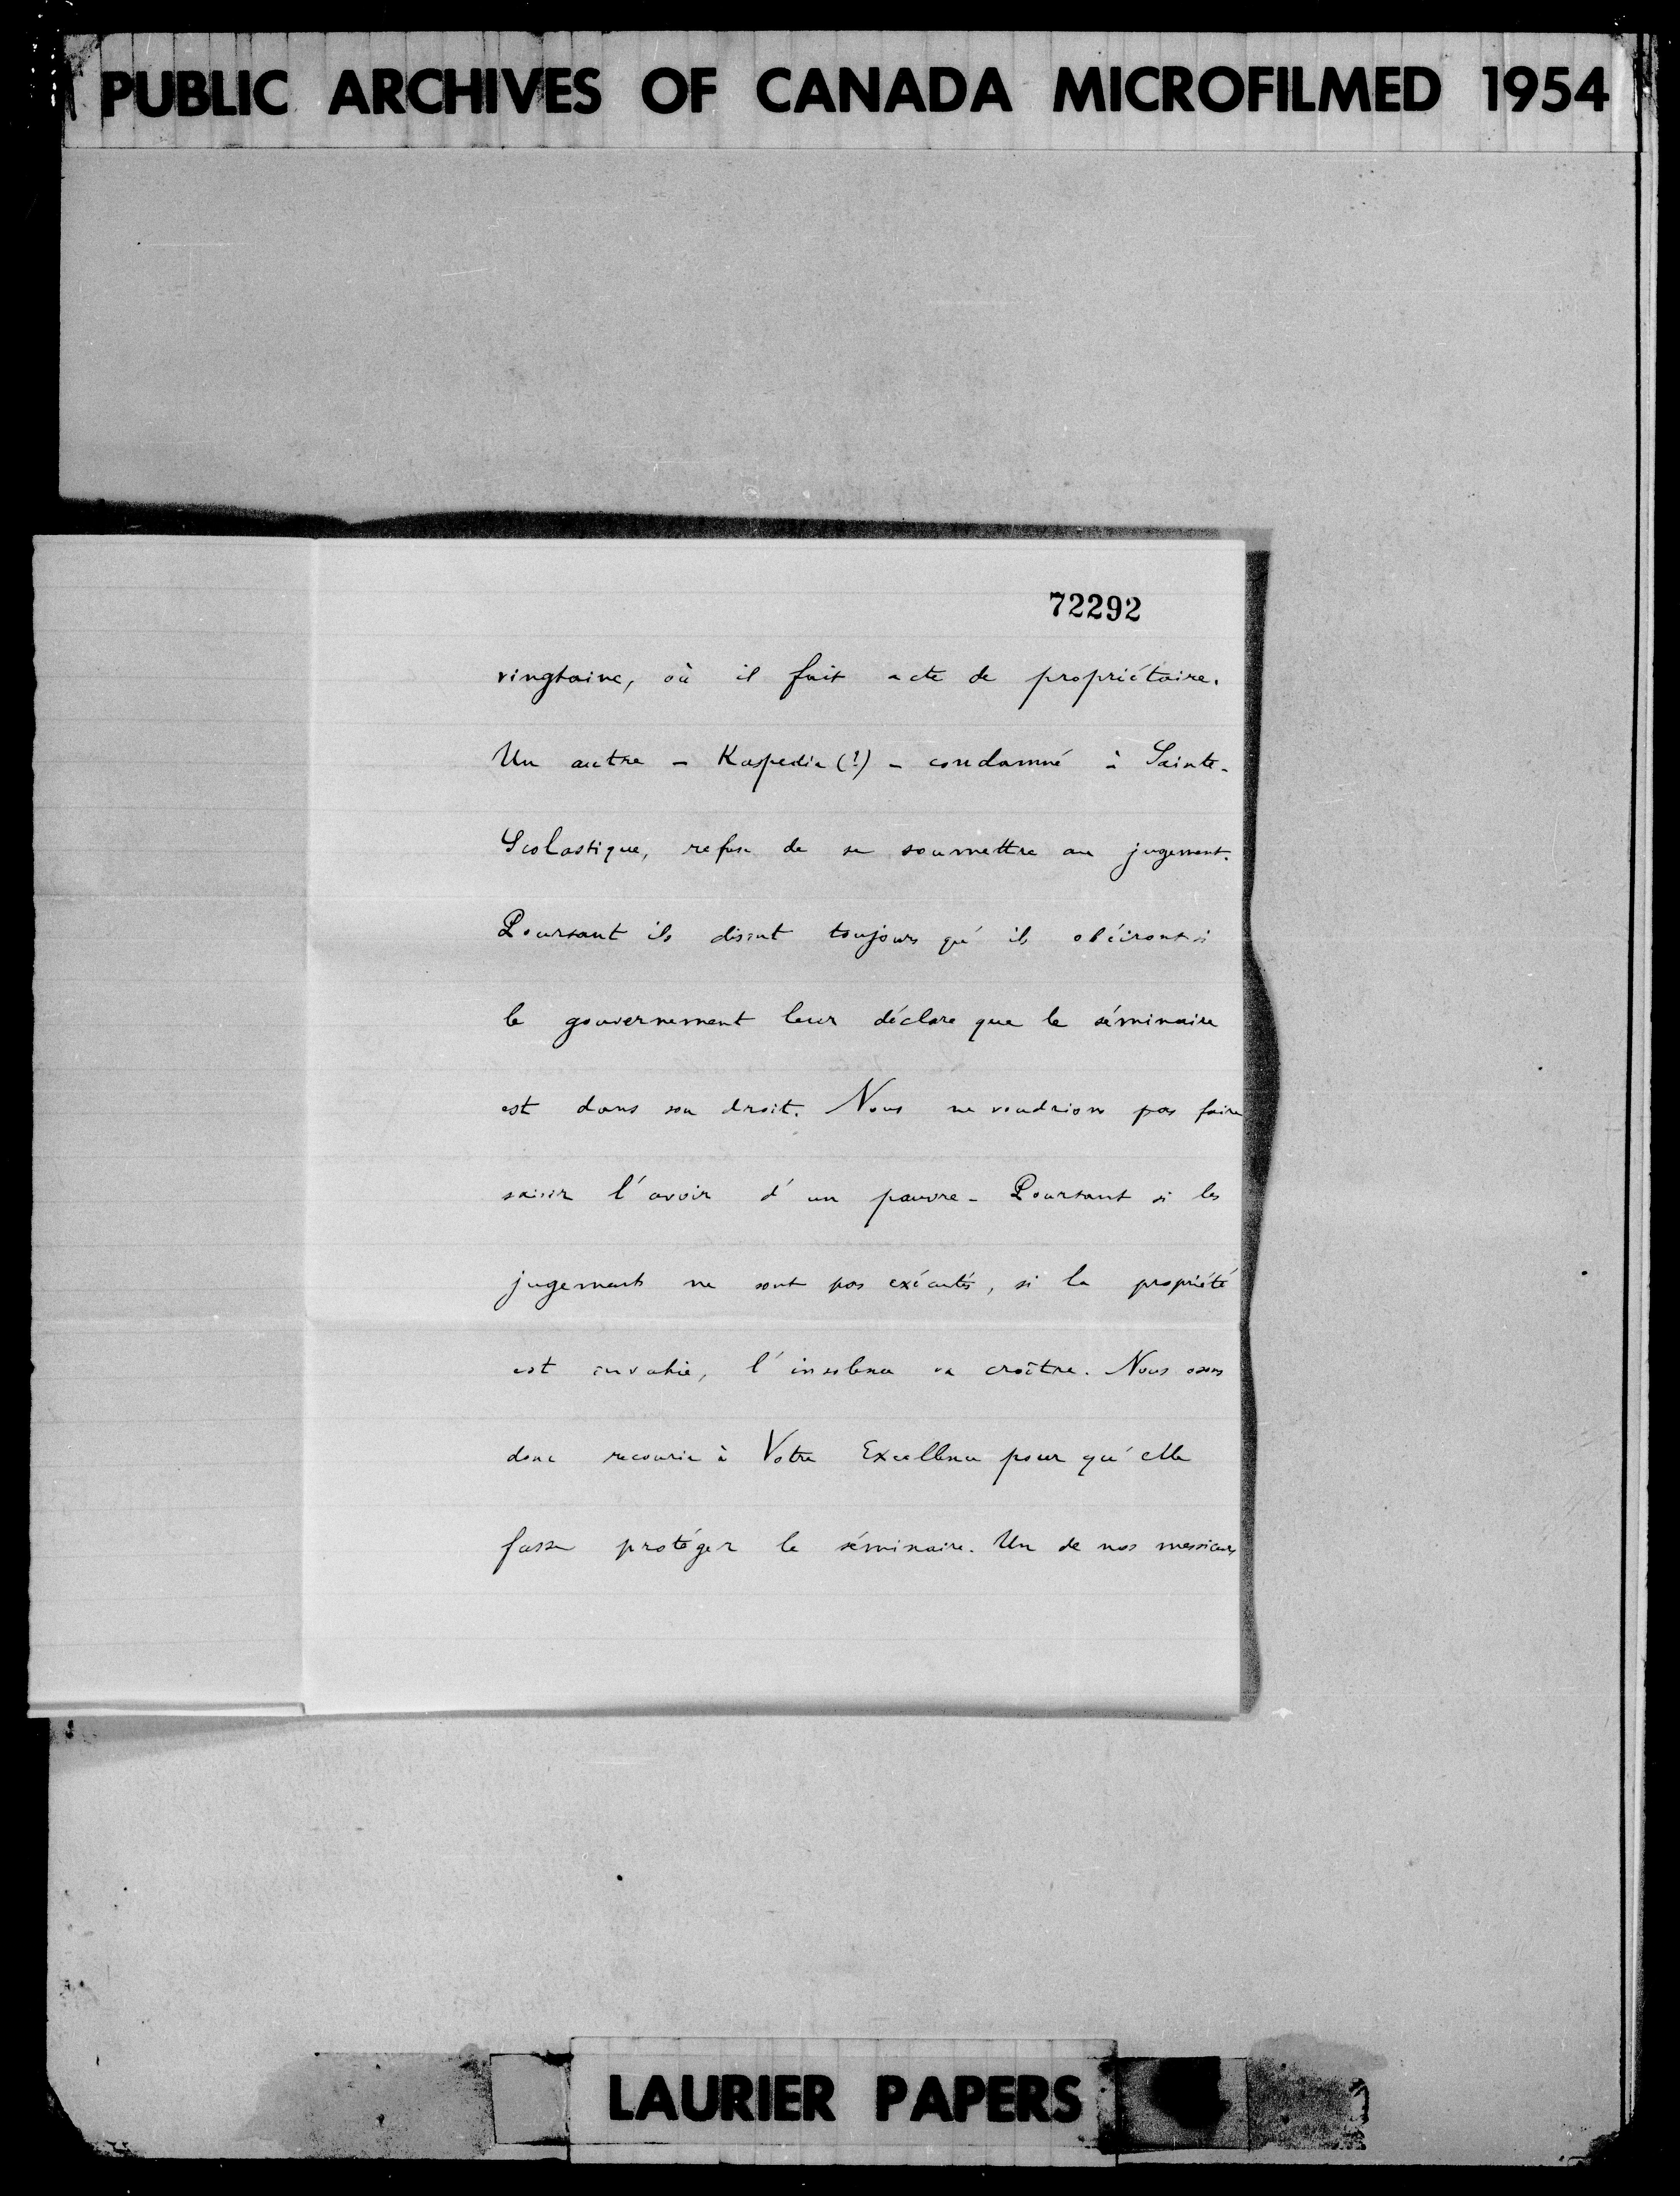 PUBLIC ARCHIVES OF CANADA MICROFILMED 1954
72292
vingtaine, où il fait acte de propriétaire.
Un autre - Kaspedia (?) - condamné à Sainte-
Scolastique, refuse de se soumettre au jugement.
Pourtant ils disent toujours qu'ils obéiront si
le gouvernement leur déclare que le séminaire
est dans son droit. Nous ne voudrions pas faire
saisir l'avoir d'un pauvre - Pourtant si les
jugements ne sont pas exécutés, si la propriété
est envahie, l'insolence va croître. Nous osons
donc recourir à Votre Excellence pour qu'elle
fasse protéger le séminaire. Un de nos messieurs
LAURIER PAPERS